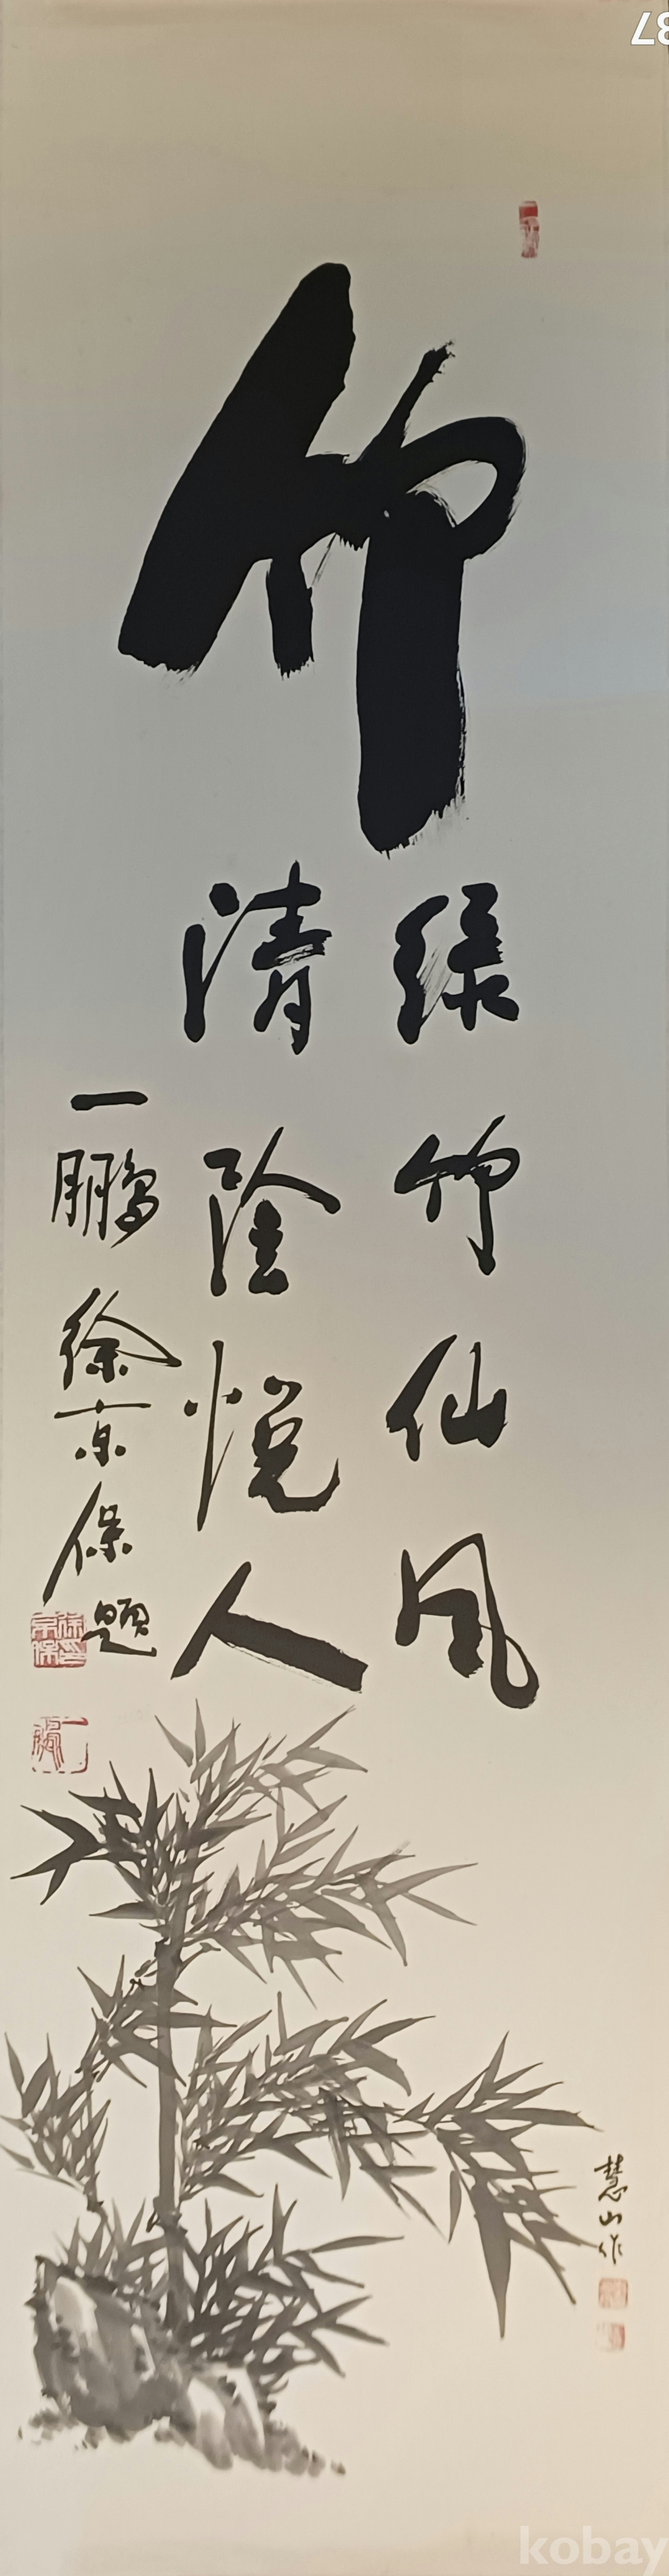 87
竹
綠竹仙風
清陰悅人
一鵬 徐京保題
慧山作
kobay